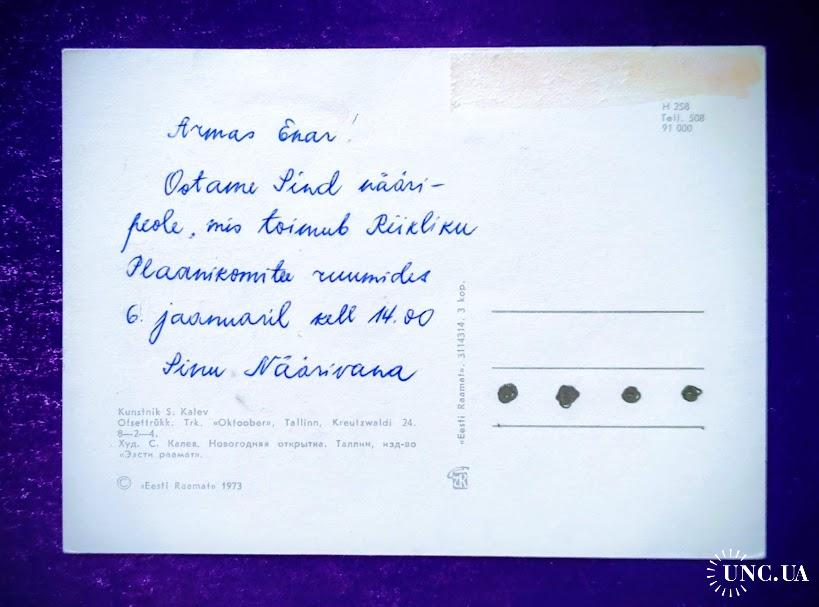 H 258
Tell. 508
91 000
Armas Enar!
Ootame Sind nääri-
peole, mis toimub Riikliku
Plaanikomitee ruumides
6. jaanuaril kell 14.00
Sinu Näärivana
Kunstnik S. Kalev
Ofsettrükk. Trk. «Oktoober», Tallinn, Kreutzwaldi 24.
8—2—4.
Худ. С. Калев. Новогодняя открытка. Таллин, изд-во
«Ээсти раамат».
© «Eesti Raamat» 1973
«Eesti Raamat». 3114314. 3 kop.
UNC.UA